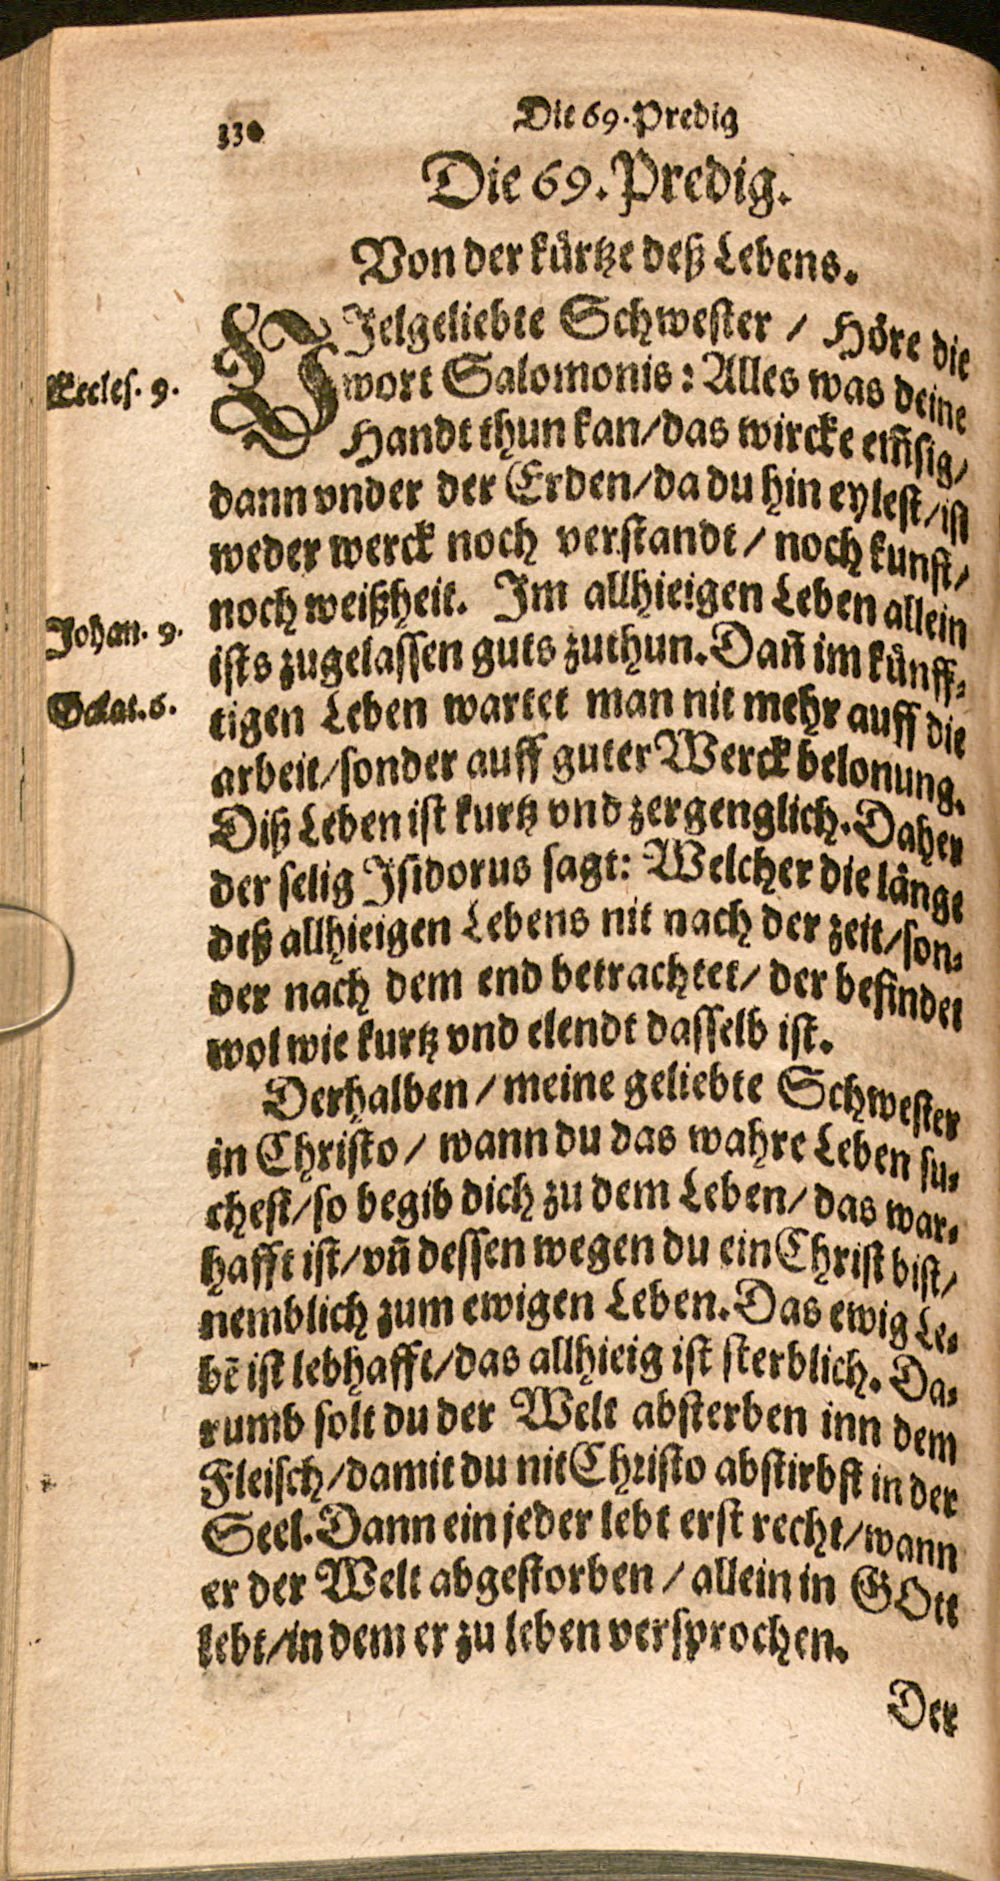 330
Die 69. Predig
Die 69. Predig.
Von der kürtze deß Lebens.
VJelgeliebte Schwester / Höre die
Eccles. 9.
wort Salomonis: Alles was deine
Handt thun kan/das wircke em̃sig/
dann vnder der Erden/da du hin eylest/ist
weder werck noch verstandt / noch kunst/
noch weißheit. Im allhieigen Leben allein
Johan. 9.
ists zugelassen guts zuthun. Dañ im künff-
Galat. 6.
tigen Leben wartet man nit mehr auff die
arbeit/sonder auff guter Werck belonung.
Diß Leben ist kurtz vnd zergenglich. Daher
der selig Isidorus sagt: Welcher die länge
deß allhieigen Lebens nit nach der zeit/son-
der nach dem end betrachtet/ der befindet
wol wie kurtz vnd elendt dasselb ist.
Derhalben / meine geliebte Schwester
in Christo / wann du das wahre Leben su-
chest/so begib dich zu dem Leben/ das war-
hafft ist/vñ dessen wegen du ein Christ bist/
nemblich zum ewigen Leben. Das ewig Le-
bē ist lebhafft/das allhieig ist sterblich. Da-
rumb solt du der Welt absterben inn dem
Fleisch/damit du nit Christo abstirbst in der
Seel. Dann ein jeder lebt erst recht/wann
er der Welt abgestorben / allein in GOtt
lebt/in dem er zu leben versprochen.
Der